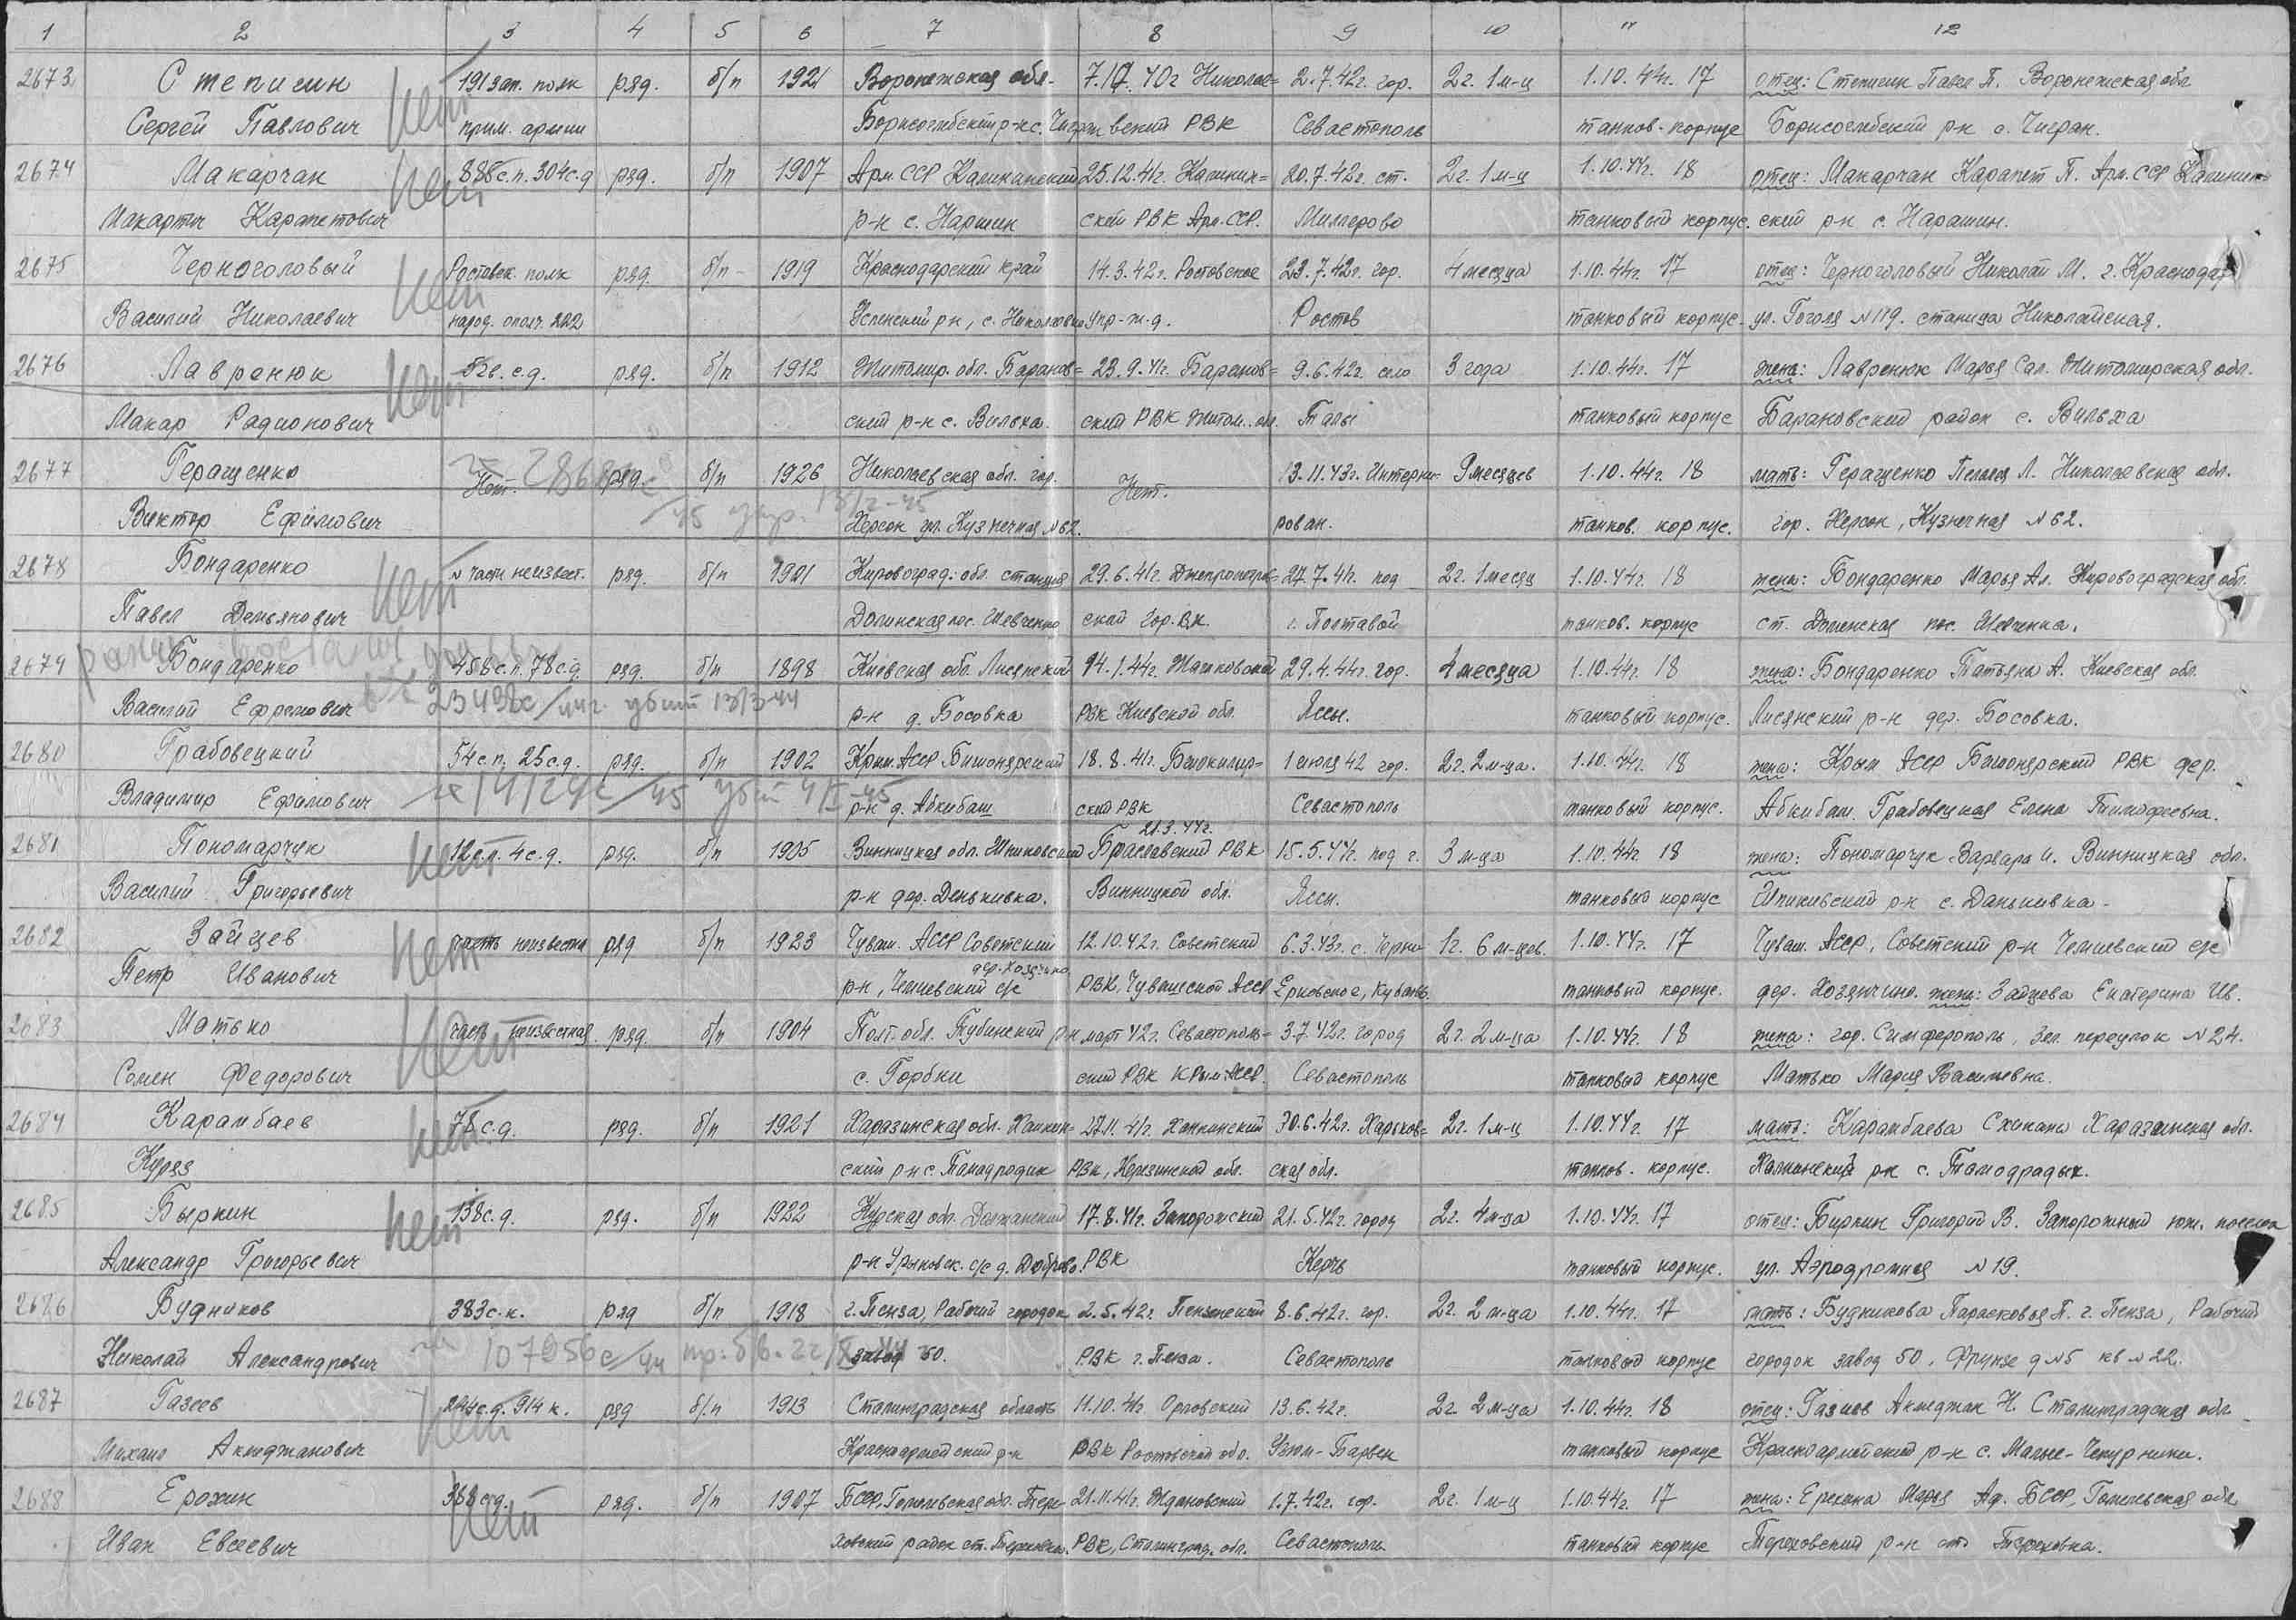 1 2 3 4 5 6 7 8 9 10 11 12
2673 Степисин нет 191 зап. полк ряд. б/п 1921 Воронежская обл. 7.10.40г Николае= 2.7.42г. гор. 2г. 1 м-ц 1.10.44г. 17 отец: Степисин Павел П. Воронежская обл
Сергей Павлович прим. армии Борисоглебский р-н с. Чигран вский РВК Севастополь танков. корпус Борисоглебский р-н с. Чигран.
2674 Макарчан нет 886 с.п. 304 с.д ряд. б/п 1907 Арм. ССР Калининский 25.12.41г. Калинин= 20.7.42г. ст. 2г. 1 м-ц 1.10.44г. 18 отец: Макарчан Карапет П. Арм. ССР Калинин=
Макартич Карапетович р-н с. Наршин ский РВК Арм. ССР. Миллерово танковый корпус. ский р-н с. Нарашин.
2675 Черноголовый нет Ростовск. полк ряд. б/п 1919 Краснодарский край 14.3.42г. Ростовское 23.7.42г. гор. 4 месяца 1.10.44г. 17 отец: Черноголовый Николай М. г. Краснодар
Василий Николаевич народ. ополч. 222 Успенский р-н, с. Николаевка упр-ж.д. Ростов танковый корпус. ул. Гоголя №119. станица Николайская.
2676 Лавренюк нет с.д. ряд. б/п 1912 Житомир. обл. Баранов= 23.9.41г. Баранов= 9.6.42г. село 3 года 1.10.44г. 17 жена: Лавренюк Марья Сал. Житомирская обл.
Макар Радионович ский р-н с. Вильха. ский РВК Житом. обл. Талы танковый корпус Барановский район с. Вильха
2677 Геращенко Нет. ряд. б/п 1926 Николаевская обл. гор. Нет. 13.11.43г. Интерни- 9 месяцев 1.10.44г. 18 мать: Геращенко Пелагея Л. Николаевская обл.
Виктор Ефимович Херсон ул. Кузнечная №62. рован. танков. корпус. гор. Херсон, Кузнечная №62.
2678 Бондаренко нет № части неизвест. ряд. б/п 1901 Кировоград. обл. станция 29.6.41г. Днепропетров= 27.7.41г. под 2г. 1 месяц 1.10.44г. 18 жена: Бондаренко Марья Ал. Кировоградская обл.
Павел Демьянович Долинская пос. Шевченко ский Гор. ВК. г. Полтавой танков. корпус ст. Долинская пос. Шевченка.
2679 Бондаренко 458 с.п. 78 с.д. ряд. б/п 1898 Киевская обл. Лисянский 14.1.44г. Жашковский 29.4.44г. гор. 4 месяца 1.10.44г. 18 жена: Бондаренко Татьяна А. Киевская обл.
Василий Ефремович 23492с/44г. убит 13/3-44 р-н д. Босовка РВК Киевской обл. Яссы. танковый корпус. Лисянский р-н дер. Босовка.
2680 Грабовецкий 54 с.п. 25 с.д. ряд. б/п 1902 Крым. АССР 18.8.41г. 1 июля 42 гор. 2г. 2 м-ца. 1.10.44г. 18 жена: Крым АССР РВК дер.
Владимир Ефимович р-н д. Абкибаш ский РВК Севастополь танковый корпус. Абкибаш. Грабовецкая Елена Тимофеевна.
2681 Пономарчук нет 12 с.п. 4 с.д. ряд. б/п 1905 Винницкая обл. Шпиковский 21.3.44г. Браславский РВК 15.5.44г. под г. 3 м-ца 1.10.44г. 18 жена: Пономарчук Варвара И. Винницкая обл.
Василий Григорьевич р-н дер. Денькивка. Винницкой обл. Яссы. танковый корпус Шпикивский р-н с. Данькивка
2682 Зайцев нет часть неизвестна ряд б/п 1923 Чуваш. АССР Советский 12.10.42г. Советский 6.3.43г. с. Черно- 1г. 6 м-цев. 1.10.44г. 17 Чуваш. АССР, Советский р-н Чемиевский с/с
Петр Иванович р-н, Чемиевский с/с РВК, Чувашской АССР Ерковское, Кубань. танковый корпус. дер. Ходячино. жена: Зайцева Екатерина Ив.
2683 Матько нет часть неизвестная. ряд. б/п 1904 Полт. обл. р-н март 42г. Севастополь- 3.7.42г. город 2г. 2 м-ца 1.10.44г. 18 жена: гор. Симферополь, Зел. переулок №24.
Семен Федорович с. Горбни ский РВК Крым. АССР. Севастополь танковый корпус Матько Мария Васильевна.
2684 Карамбаев нет 78 с.д. ряд. б/п 1921 Харазинская обл. Ханкин= 27.11.41г. Ханкинский 30.6.42г. Харьков= 2г. 1 м-ц 1.10.44г. 17 мать: Карамбаева Схипана Харазинская обл.
Куряз ский р-н с. РВК, обл. ская обл. танков. корпус. Ханкинский р-н с. Тамодрадык.
2685 Быркин нет 138 с.д. ряд. б/п 1922 Курская обл. Должанский 17.8.41г. Запорожский 21.5.42г. город 2г. 4 м-ца 1.10.44г. 17 отец: Биркин Григорий В. Запорожный юж. поселок
Александр Григорьевич р-н Урыновск. с/с д. Доброво. РВК Керчь танковый корпус. ул. Аэродромная №19.
2686 Будников 383 с.к. ряд б/п 1918 г. Пенза, Рабочий городок 2.5.42г. Пензенский 8.6.42г. гор. 2г. 2 м-ца 1.10.44г. 17 мать: Будникова Парасковья П. г. Пенза, Рабочий
Николай Александрович 107256с/44 завод 50. РВК г. Пенза. Севастополь танковый корпус городок завод 50, Фрунзе д №5 кв №22.
2687 Газеев нет 244 с.д. 914 к. ряд б/п 1913 Сталинградская область 11.10.41г. Орловский 13.6.42г. 2г. 2 м-ца 1.10.44г. 18 отец: Газиев Акмеджан Н. Сталинградская обл
Михаил Акмеджанович Красноармейский р-н РВК Ростовской обл. Узюм-Барвен танковый корпус Красноармейский р-н с. Малые-Чепурники.
2688 Ерохин нет 388 с.д. ряд. б/п 1907 БССР, Гомельская обл. Тере- 21.11.41г. Ждановский 1.7.42г. гор. 2г. 1 м-ц 1.10.44г. 17 жена: Ерехина Марья Ад. БССР, Гомельская обл
Иван Евсеевич ховский район ст. Тереховка. РВК, Сталинград. обл. Севастополь танковый корпус Тереховский р-н ст. Тереховка.